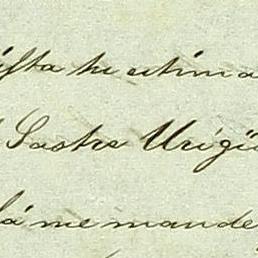 ista tu estima
Sastre Urigü
la me mande